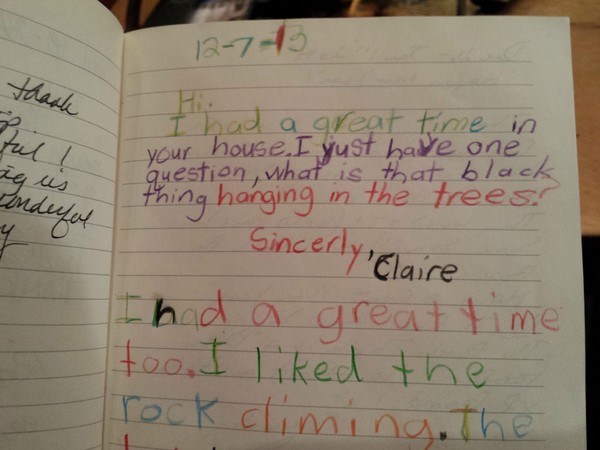 thank
ful!
us
onderful
y
12-7-13
Hi.
I had a great time in
your house. I just have one
question, what is that black
thing hanging in the trees?
Sincerly,
Claire
I had a great time
too. I liked the
rock climing. The